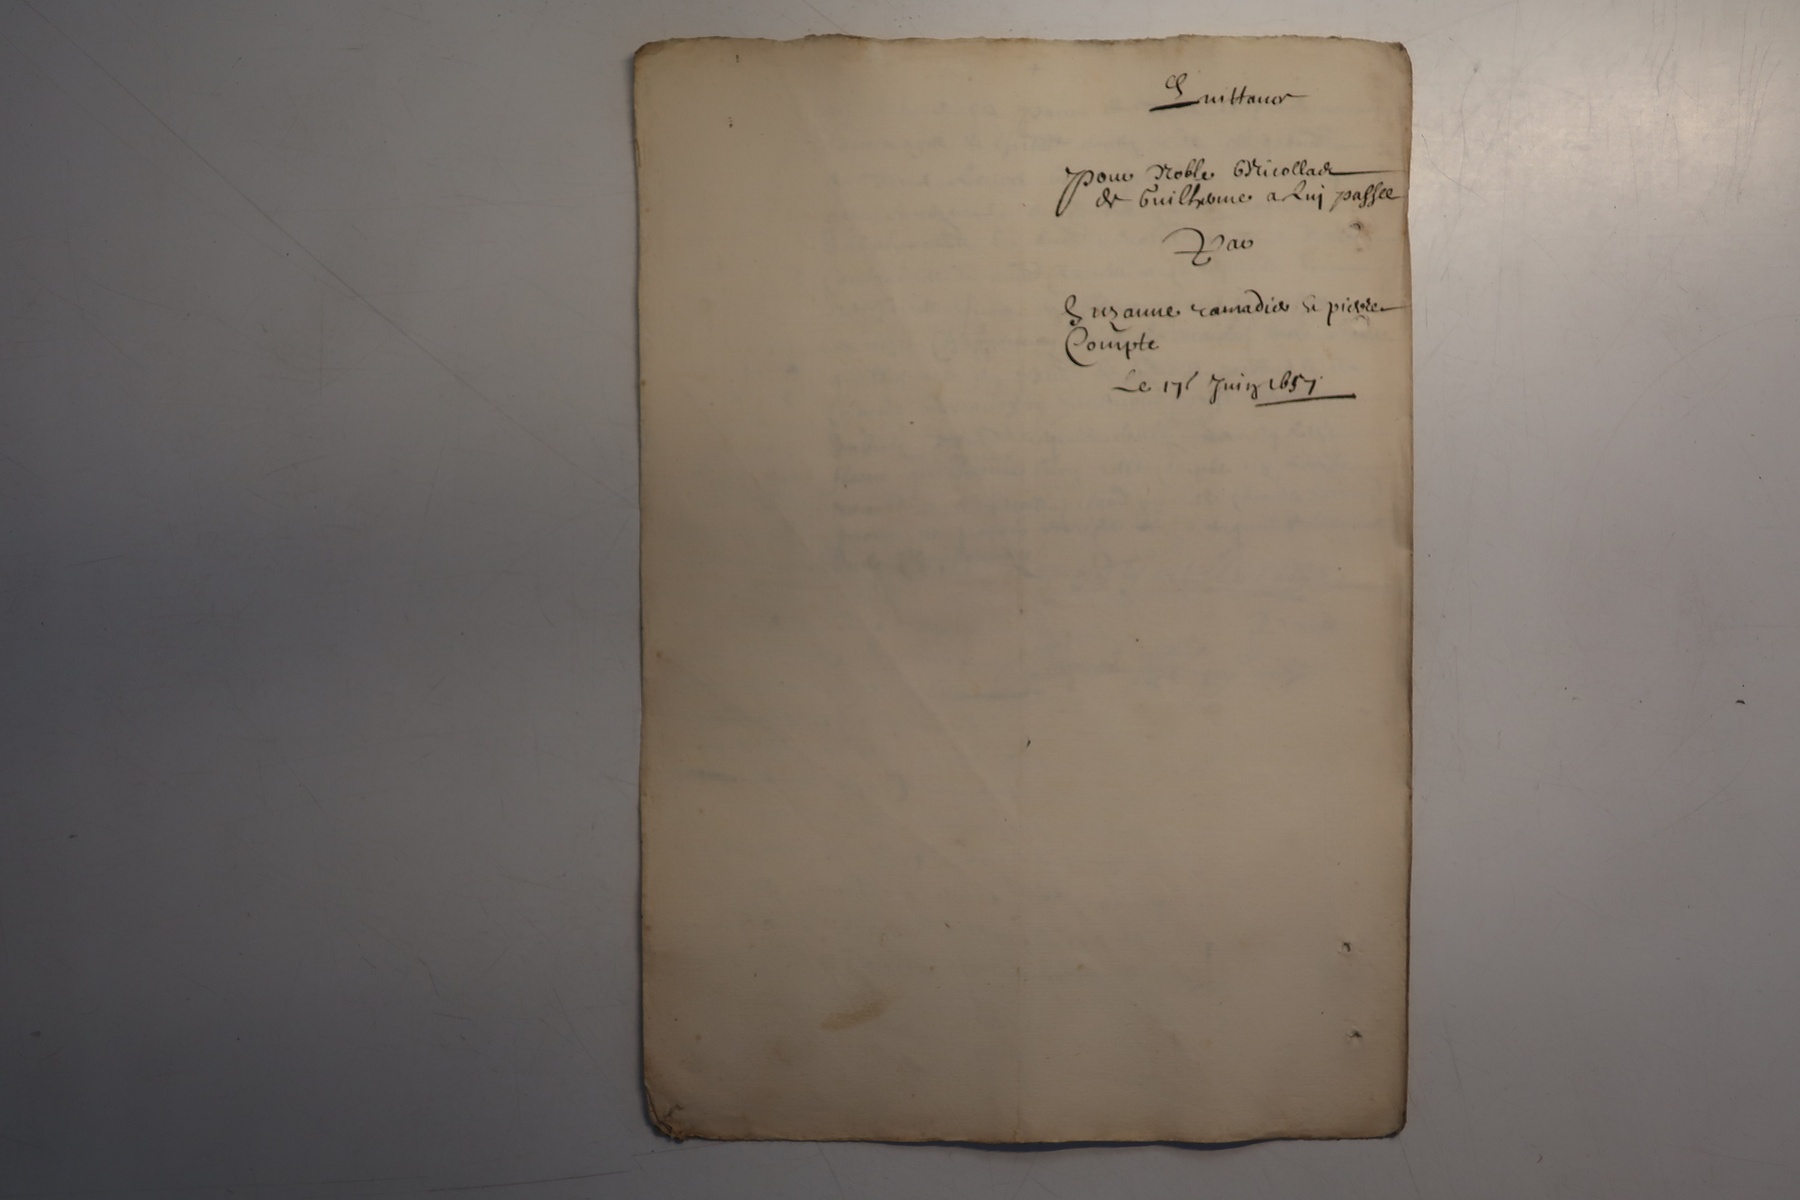 Quittance
pour Noble Nicollas
de Guilherme a Luy passee
Par
Suzanne ramadie & pierre
Compte
Le 17e Juin 1657